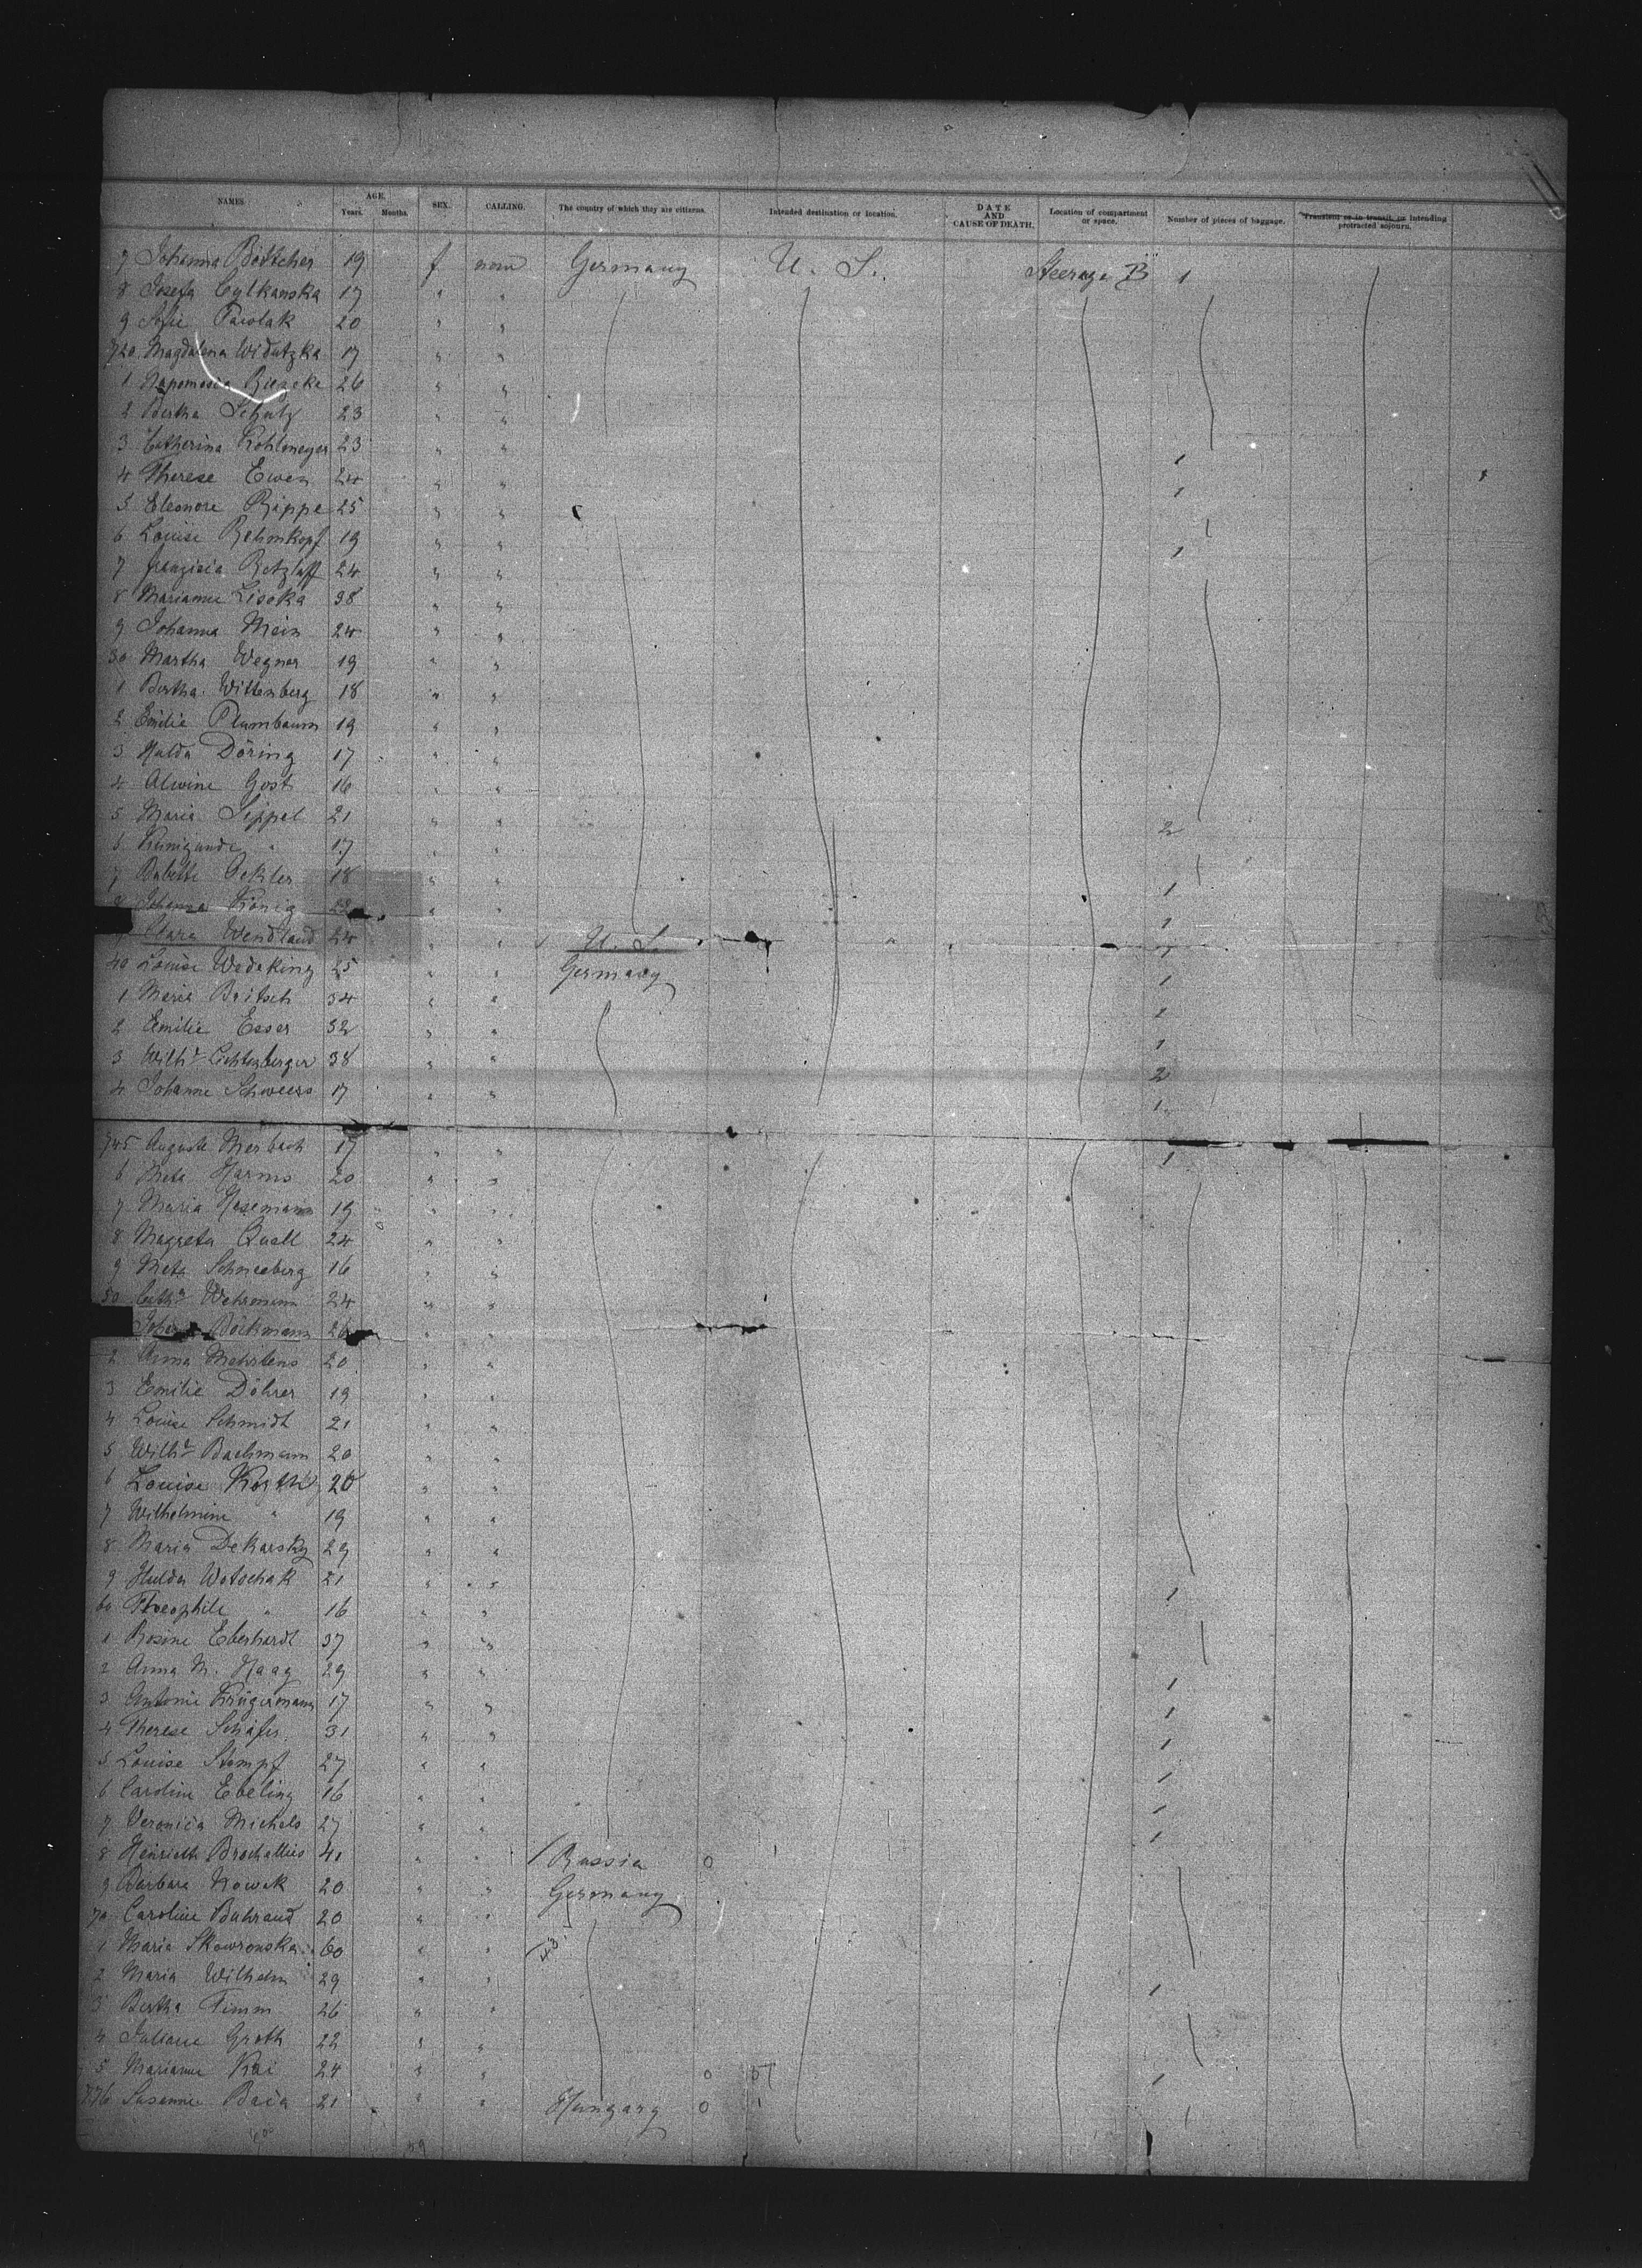 NAMES. AGE. Years. Months. SEX. CALLING. The country of which they are citizens. Intended destination or location. DATE AND CAUSE OF DEATH. Location of compartment or space. Number of pieces of baggage. Transient or in transit, or intending protracted sojourn.
7 Johanna Böttcher 19 f none Germany U. S. Steerage B 1
8 Josefa Cylkanska 17 " "
9 Pawlak 20 " "
720 Magdalena Widutzka 17 " "
1 26 " "
2 Bertha Schulz 23 " "
3 Catherina Kohlmeyer 23 " " 1
4 Therese Ewen 24 " " 1
5 Eleonore Rippe 25 " "
6 Louise Rehmkopf 19 " " 1
7 Retzlaff 24 " "
8 Marianne Lisoka 38 " "
9 Johanna Mein 24 " "
30 Martha Wegner 19 " "
1 Bertha Wittenberg 18 " "
2 Emilie Plumbaum 19 " "
3 Hulda Döring 17 " "
4 Alwine Gost 16 " "
5 Maria Sippel 21 " " 2
6 Kunigunde " 17 " "
7 Babette Aekter 18 " " 1
8 Johanna König 22 " " 1
9 Clara Wendland 24 " " U. S.
40 Louise Wedeking 25 " " Germany 1
1 Maria Britsch 34 " "
2 Emilie Esser 32 " " 1
3 Wilhe Lichtenberger 38 " " 2
4 Johanne Schweers 17 " " 1
745 Auguste Merbach 17 " " 1
6 Meta Harms 20 " "
7 Maria Hasemann 19 " "
8 Magreta Quall 24 " "
9 Meta Schneeberg 16 " "
50 Cath Wehrmann 24 " "
Böckmann 26 " "
2 Anna Mehrtens 20 " "
3 Emilie Döhrer 19 " "
4 Louise Schmidt 21 " "
5 Wilhe Bachmann 20 " "
6 Louise Korth 20 " "
7 Wilhelmine " 19 " "
8 Maria Dekarsky 29 " "
9 Hulda Wotschak 21 " " 1
60 Theophile " 16 " "
1 Rosine Eberhardt 37 " "
2 Anna M. Haag 29 " " 1
3 Antonie Krügermann 17 " " 1
4 Therese Schäfer 31 " " 1
5 Louise Stempf 27 " " 1
6 Caroline Ebeling 16 " " 1
7 Veronica Michels 27 " " 1
8 Henriette Brochattus 41 " " Russia 0
9 Barbara Nowak 20 " " Germany
70 Caroline Buhrand 20 " "
1 Maria Skowronska 60 " "
2 Maria Wilhelm 29 " " 1
3 Bertha Timm 26 " "
4 Juliane Groth 22 " "
5 Marianne Kai 24 " " 0 1
776 Susanne Baca 21 " " Hungary 0 1